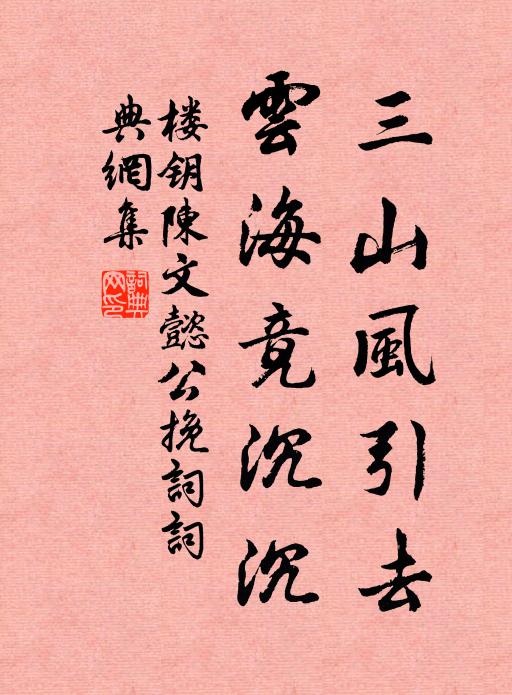 三山風引去
雲海竟沉沉
楼钥陳文懿公挽詞詞
典網集
詞典网印